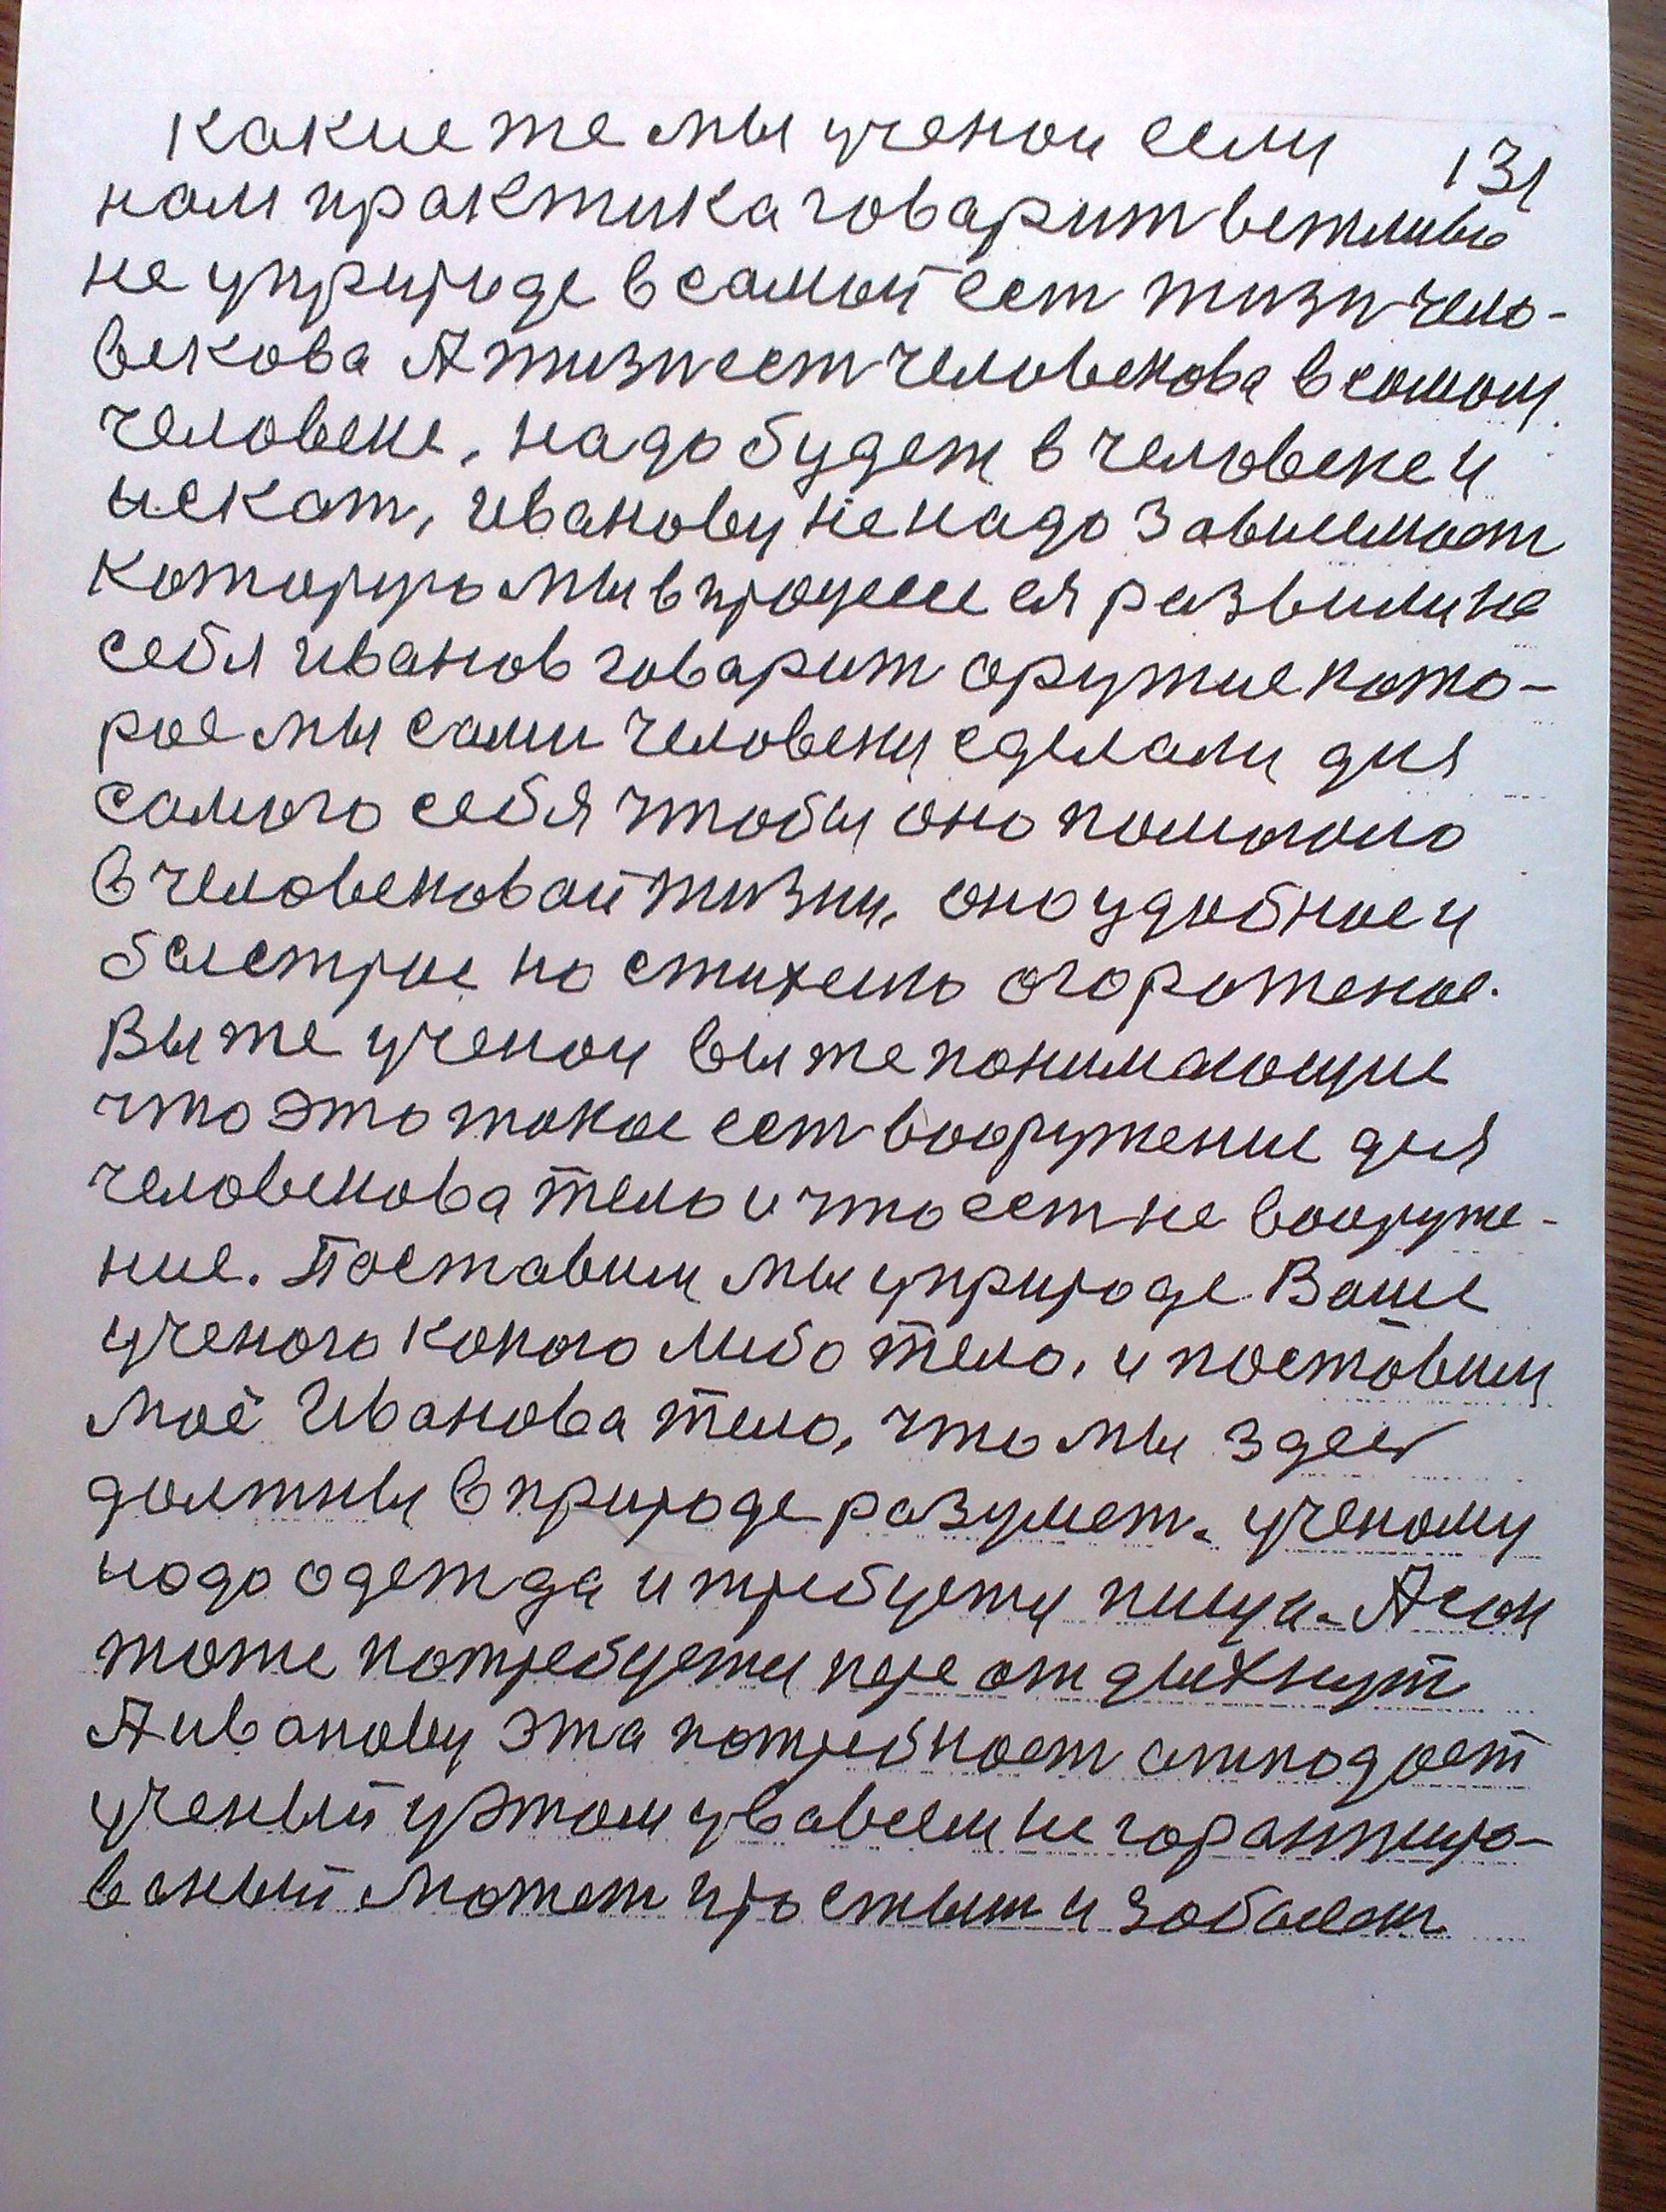 какие же мы ученои если
131
нам практика говарит вежливо
не уприроде в самой ест жизн чело-
векова А жизн ест человекова в самом
человеке, надо будет в человеке и
искат, иванову ненадо зависимост
которую мы в процессея развили на
себя иванов говарит оружие кото-
рое мы сами человеки сделали для
самого себя чтобы оно помогало
в человековай жизни, оно удобное и
быстрое но стихею огороженое.
Вы же ученои вы же понимающие
что это такое ест вооружение для
человекова тело и что ест не вооруже-
ние. Поставим мы уприроде Ваше
ученого какого либо тело, и поставим
моё Иванова тело, что мы здес
должны в природе разумет. ученому
надо одежда и требуеты пищи. А сон
тоже потребуеты отдыхнут
А иванову эта потребност отподает
ученый уэтом увавсем не гарантиро-
ваный может простыт и заболет